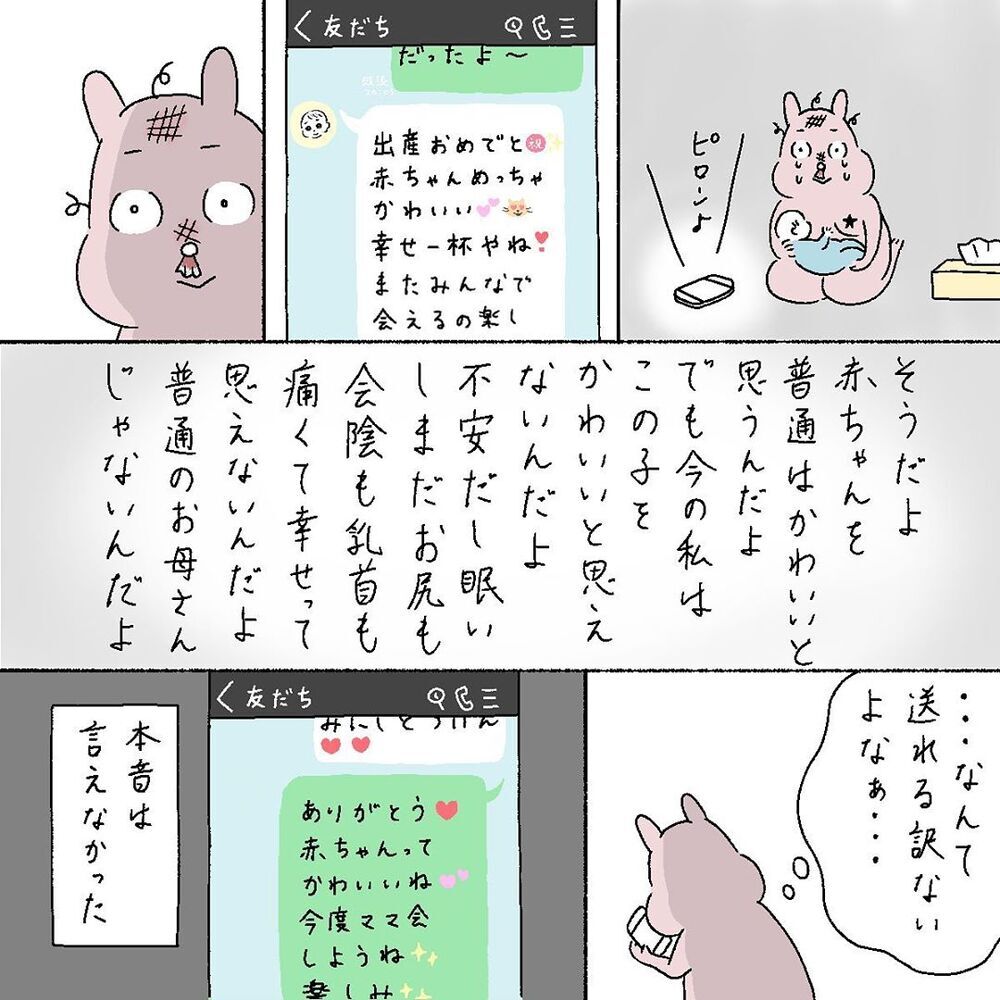 ピローン♪
友だち
だったよ〜
出産おめでと㊗
赤ちゃんめっちゃ
かわいい
幸せ一杯やね
またみんなで
会えるの楽し
そうだよ
赤ちゃんを
普通はかわいいと
思うんだよ
でも今の私は
この子を
かわいいと思え
ないんだよ
不安だし眠い
しまだお尻も
会陰も乳首も
痛くて幸せって
思えないんだよ
普通のお母さん
じゃないんだよ
・・・なんて
送れる訳ない
よなぁ・・・
友だち
ありがとう
赤ちゃんって
かわいいね
今度ママ会
しようね
楽しみ
本音は
言えなかった